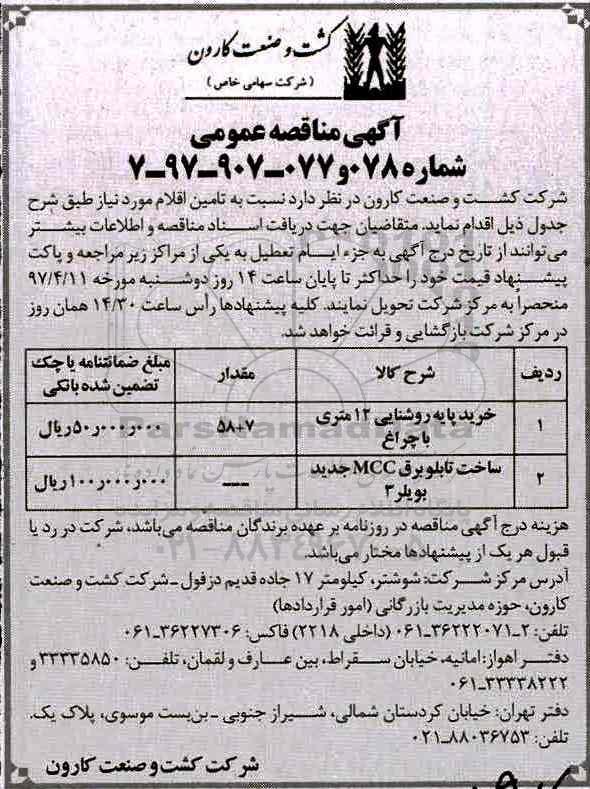 کشت و صنعت کارون
(شرکت سهامی خاص)
آگهی مناقصه عمومی
شماره ۰۷۸و۰۷۷ـ۹۰۷ـ۹۷ـ۷
شرکت کشت و صنعت کارون در نظر دارد نسبت به تامین اقلام مورد نیاز طبق شرح
جدول ذیل اقدام نماید. متقاضیان جهت دریافت اسناد مناقصه و اطلاعات بیشتر
می‌توانند از تاریخ درج آگهی به جزء ایام تعطیل به یکی از مراکز زیر مراجعه و پاکت
پیشنهاد قیمت خود را حداکثر تا پایان ساعت ۱۴ روز دوشنبه مورخه ۹۷/۴/۱۱
منحصراً به مرکز شرکت تحویل نمایند. کلیه پیشنهادها رأس ساعت ۱۴/۳۰ همان روز
در مرکز شرکت بازگشایی و قرائت خواهد شد.
ردیف شرح کالا مقدار مبلغ ضمانتنامه یا چک
تضمین شده بانکی
۱ خرید پایه روشنایی ۱۲ متری
با چراغ ۵۸+۷ ۵۰٫۰۰۰٫۰۰۰ ریال
۲ ساخت تابلو برق MCC جدید
بویلر ۳ --- ۱۰۰٫۰۰۰٫۰۰۰ ریال
هزینه درج آگهی مناقصه در روزنامه بر عهده برندگان مناقصه می‌باشد، شرکت در رد یا
قبول هر یک از پیشنهادها مختار می‌باشد.
آدرس مرکز شرکت: شوشتر، کیلومتر ۱۷ جاده قدیم دزفول ـ شرکت کشت و صنعت
کارون، حوزه مدیریت بازرگانی (امور قراردادها)
تلفن: ۲ـ۳۶۲۲۲۰۷۱ـ۰۶۱ (داخلی ۲۲۱۸) فاکس: ۳۶۲۲۷۳۰۶ـ۰۶۱
دفتر اهواز: امانیه، خیابان سقراط، بین عارف و لقمان، تلفن: ۳۳۳۳۵۸۵۰ و
۳۳۳۳۸۲۲۲ـ۰۶۱
دفتر تهران: خیابان کردستان شمالی، شیراز جنوبی ـ بن‌بست موسوی، پلاک یک.
تلفن: ۸۸۰۳۶۷۵۳ـ۰۲۱
شرکت کشت و صنعت کارون